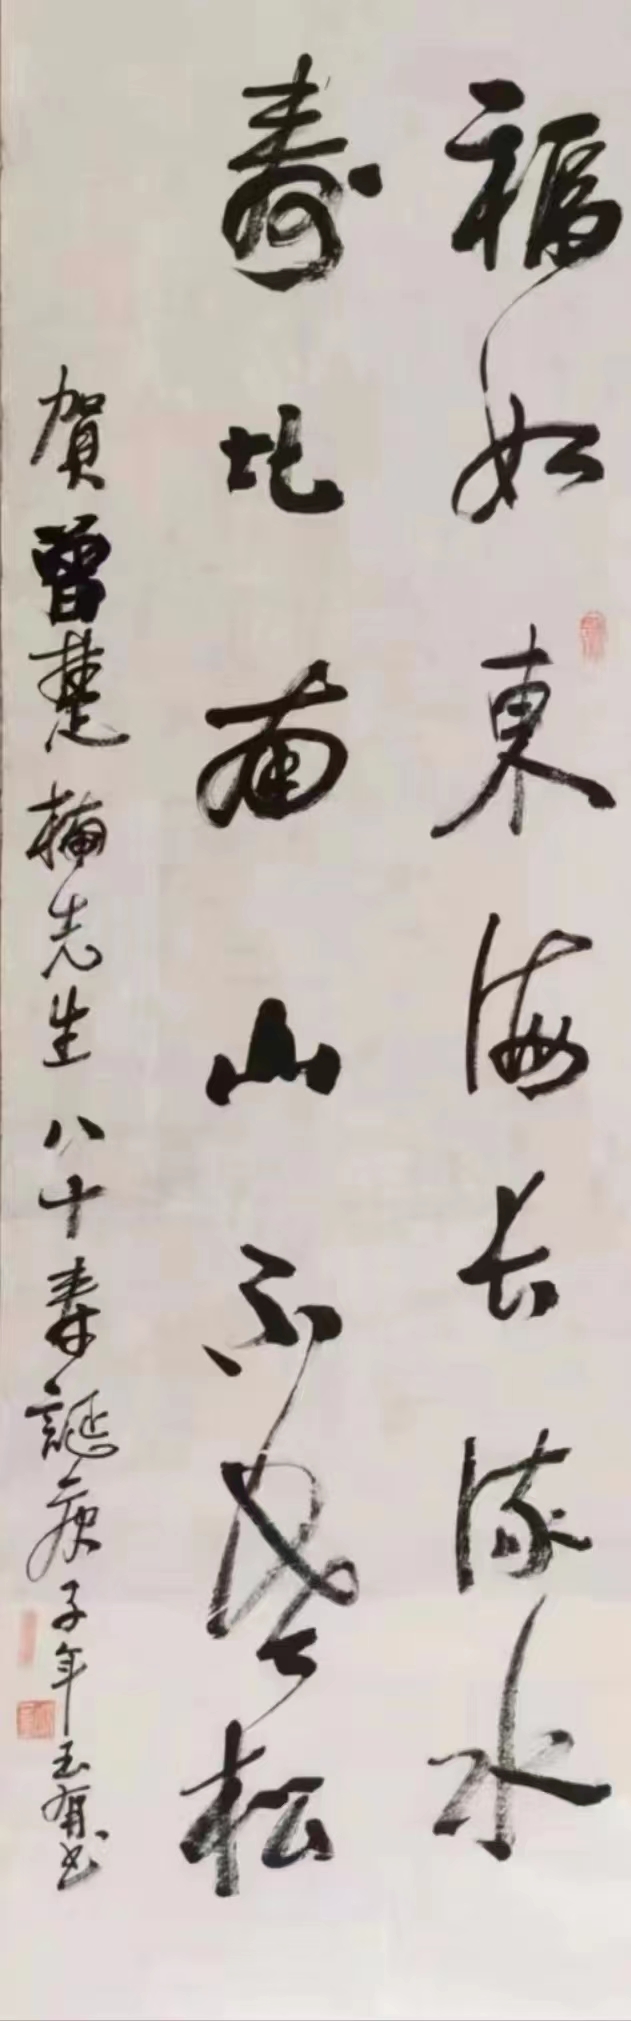 福如東海长流水
壽比南山不老松
賀曾楚楠先生八十壽誕庚子年玉有书